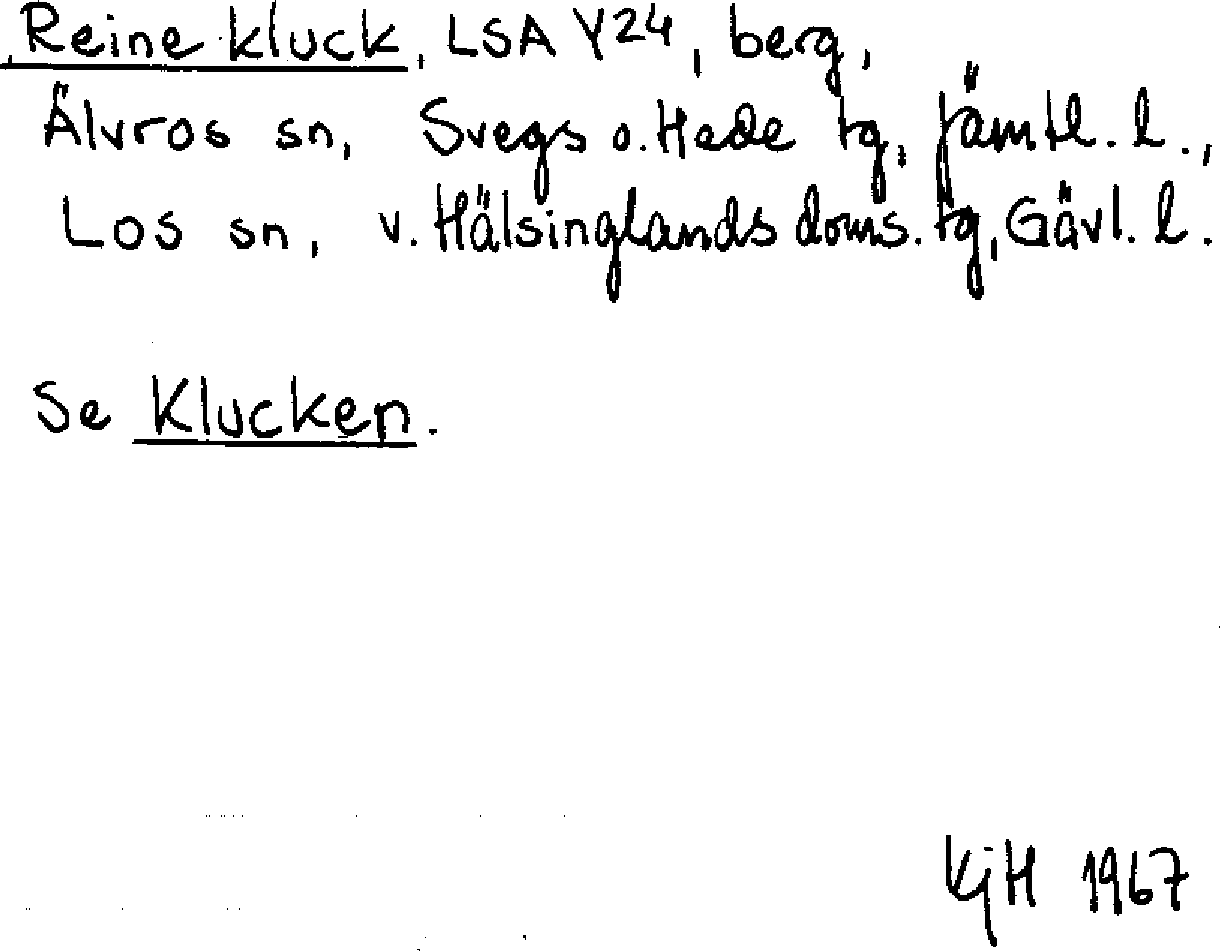 Reine kluck, LSA Y24, berg,
Älvros sn, Svegs o. Hede tg, Jämtl. l.,
Los sn, v. Hälsinglands doms. tg, Gävl. l.
Se Klucken.
KjH 1967